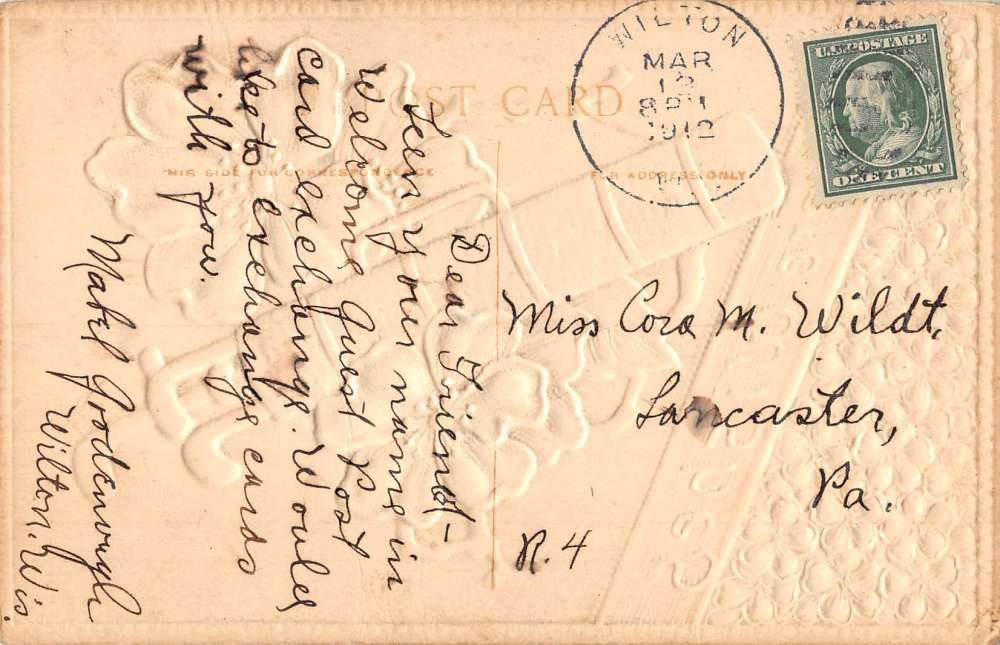 POST CARD
THIS SIDE FOR CORRESPONDENCE
FOR ADDRESS ONLY
WILTON
MAR
8 PM
1912
U.S. POSTAGE
ONE CENT
Dear Friend-
Seen your name in
Welcome Guest Post
Card exchange. Would
like to exchange cards
with you.
Mabel Goodenough
Wilton. Wis.
Miss Cora M. Wildt,
Lancaster,
Pa.
R. 4